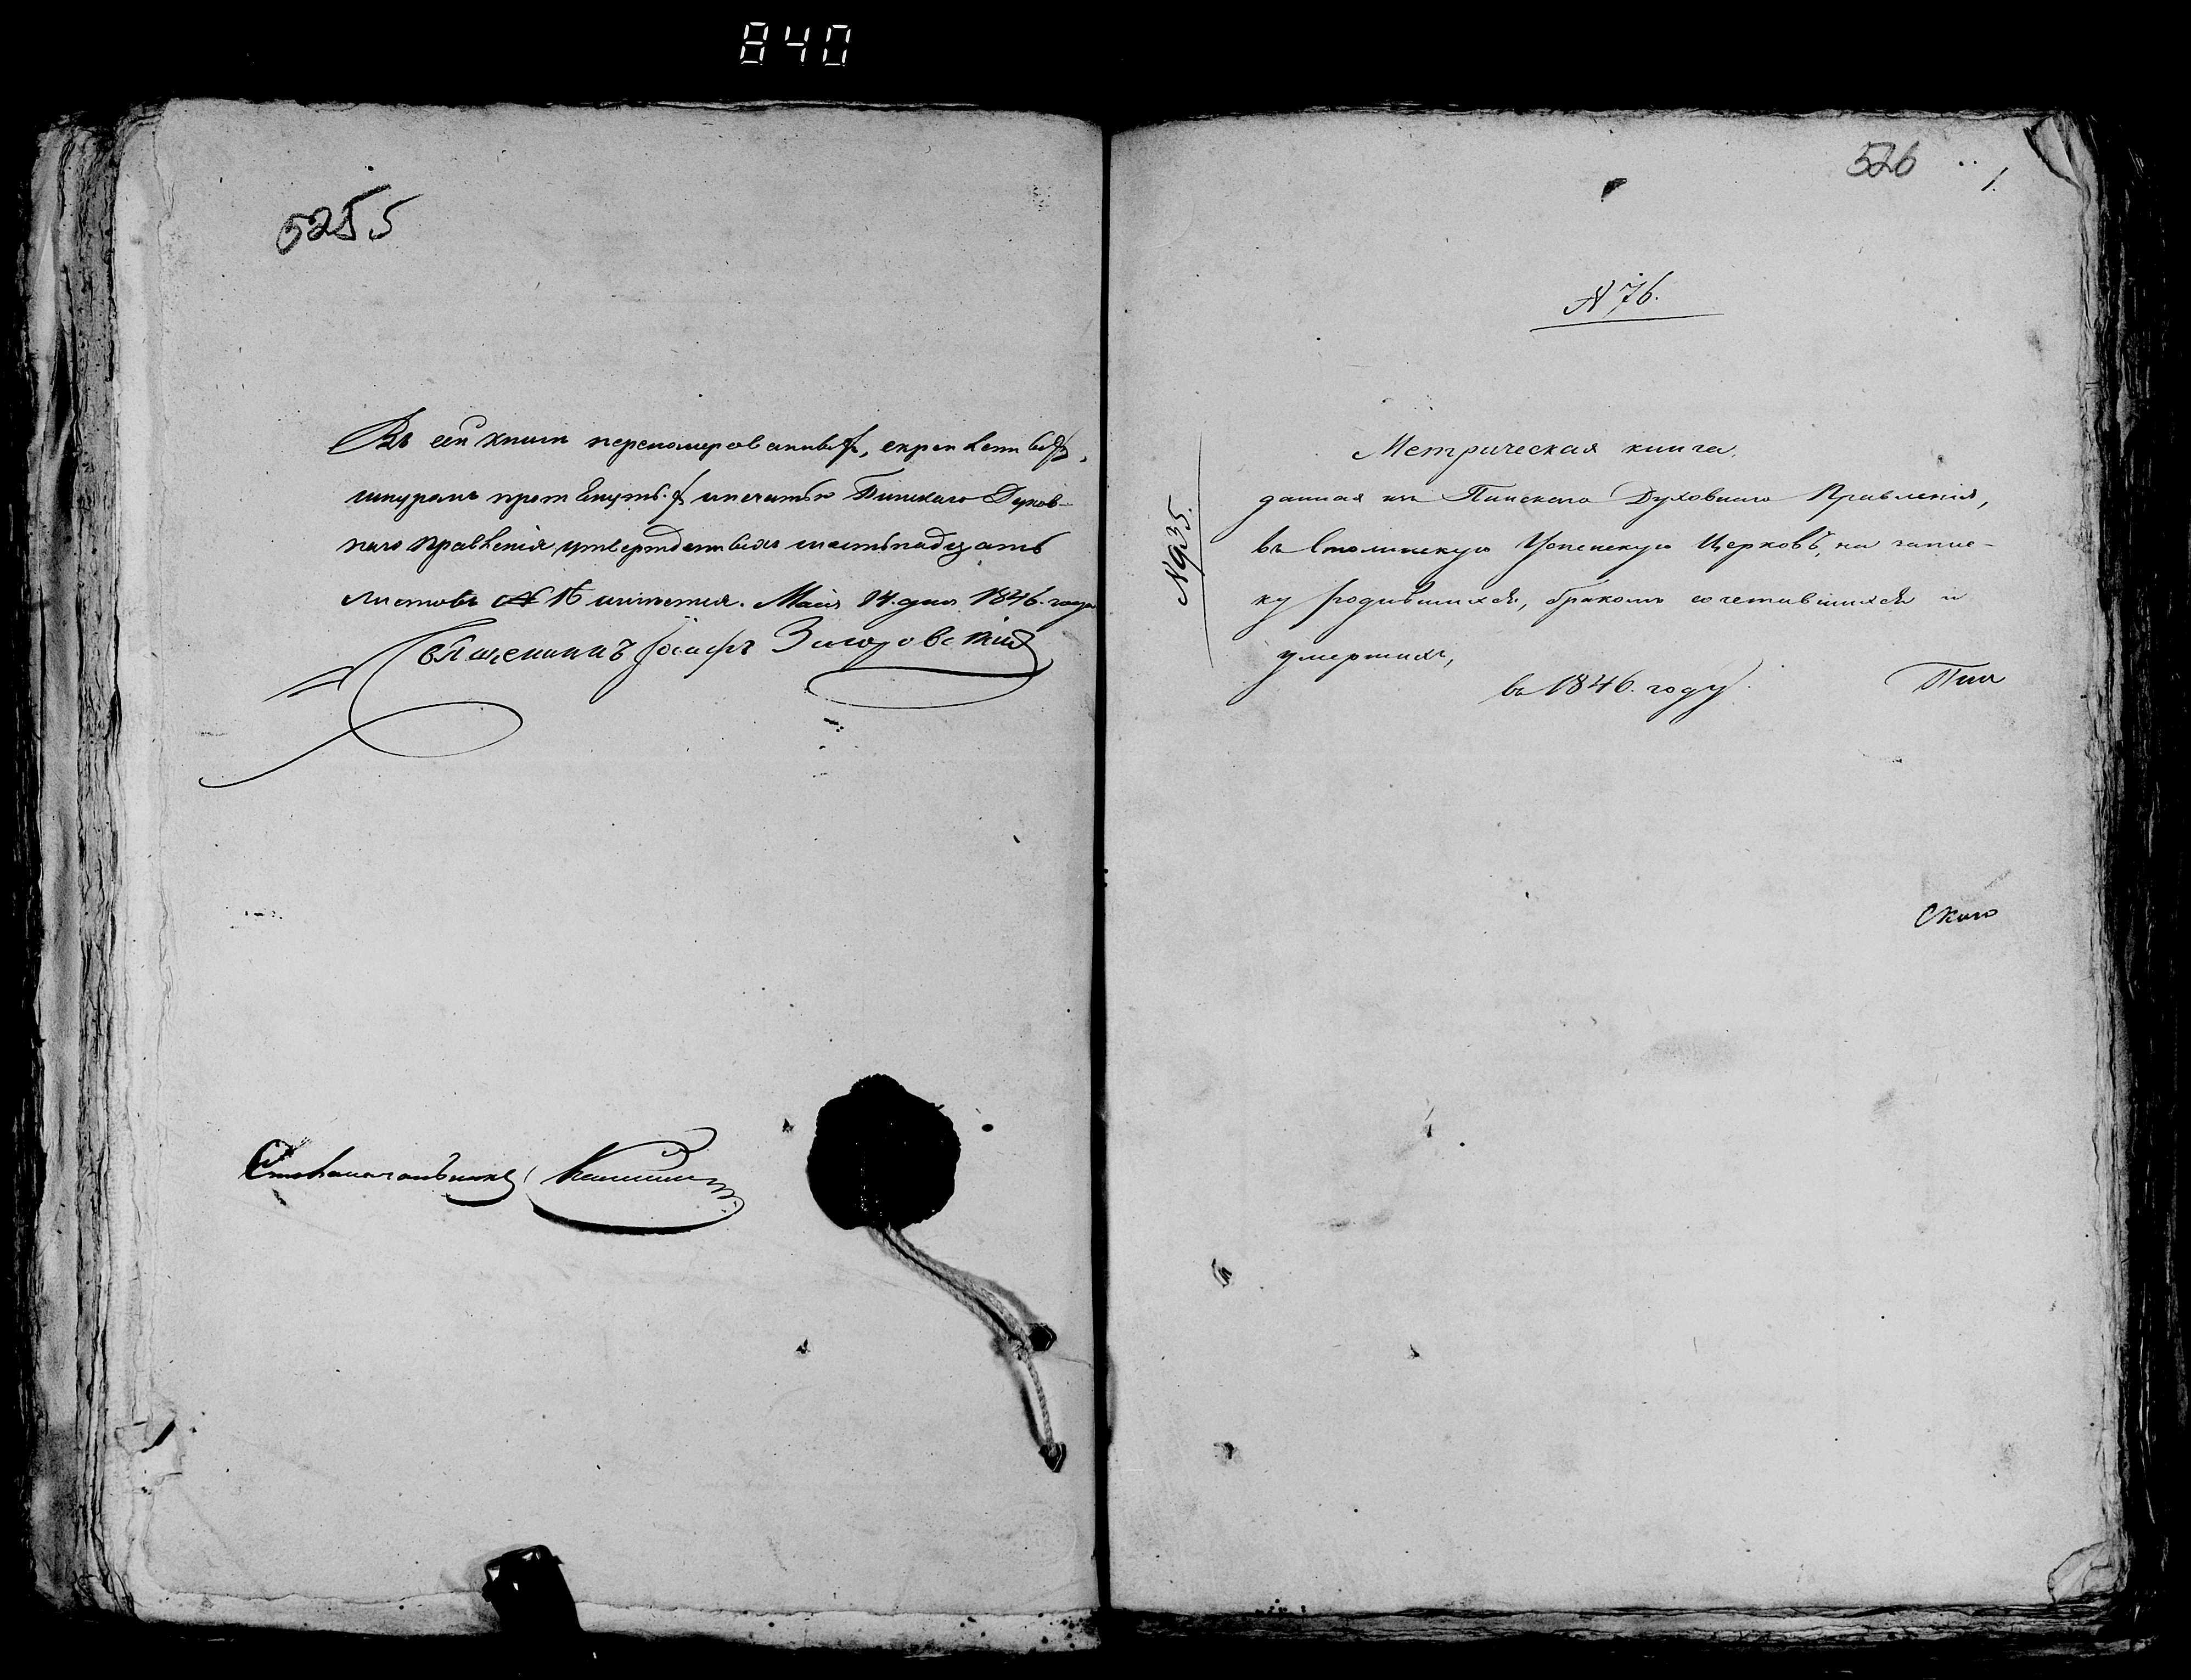 840
5255
Въ сей книги переномерованныхъ, скрепленныхъ,
шнуромъ протянутыхъ и печатью Пинскаго Духов-
наго Правленія утвержденныхъ шестьнадцать
листовъ № 16 Маія 14. дня 1846. года
Священникъ Іосифъ
Столоначальникъ
526
1.
N 76.
N 935.
Метрическая книга,
данная изъ Пинскаго Духовнаго Правленія,
въ Столинскую Успенскую Церковь, на запис-
ку родившихся, бракомъ сочетавшихся и
умершихъ,
въ 1846. году.
Пин
скаго